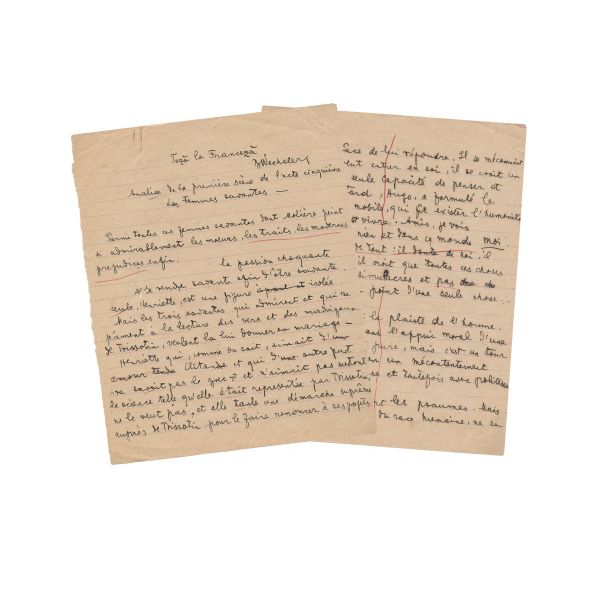 Teză la Franceză
B Wechsler
Analise de la première scène de l'acte cinquième
des Femmes savantes —
Parmi toutes ces femmes savantes dont Molière peint
admirablement les moeurs, les traits, les
prejudices, enfin. la passion choquante
se rendre savante afin d'être savante.
seule, Henriette, est une figure à part et isolée
Mais les trois savantes qui admirent et qui se
pâment à la lecture des vers et des madrigaux
de Trissotin, veulent la lui donner en mariage —
Henriette qui, comme on sait, aimait d'un
amour tendre Clitandre et qui d'une autre part
ne savait pas le grec et n'aimait pas surtout
la science telle qu'elle était representée par Trissotin,
ne le veut pas, et elle tente une démarche suprême
auprès de Trissotin pour le faire renoncer à ses projets
face de lui répondre. Il se
entrer en soi, il se croit un
seule capacité de penser et
tard, Hugo, a formulé le
mobile, qui fit exister l'humanité
et vivre. Amis, je vois
rien et dans ce monde moi.
de tout il doute de soi. il
il croit que toutes ces choses
simulacres et pas
point d'une seule chose.
la plainte de l'homme.
l'appui moral d'une
pure, mais c'est un tour
un mécontentement
et toutefois avec politesse
et les psaumes. Mais
du race humaine, ne se